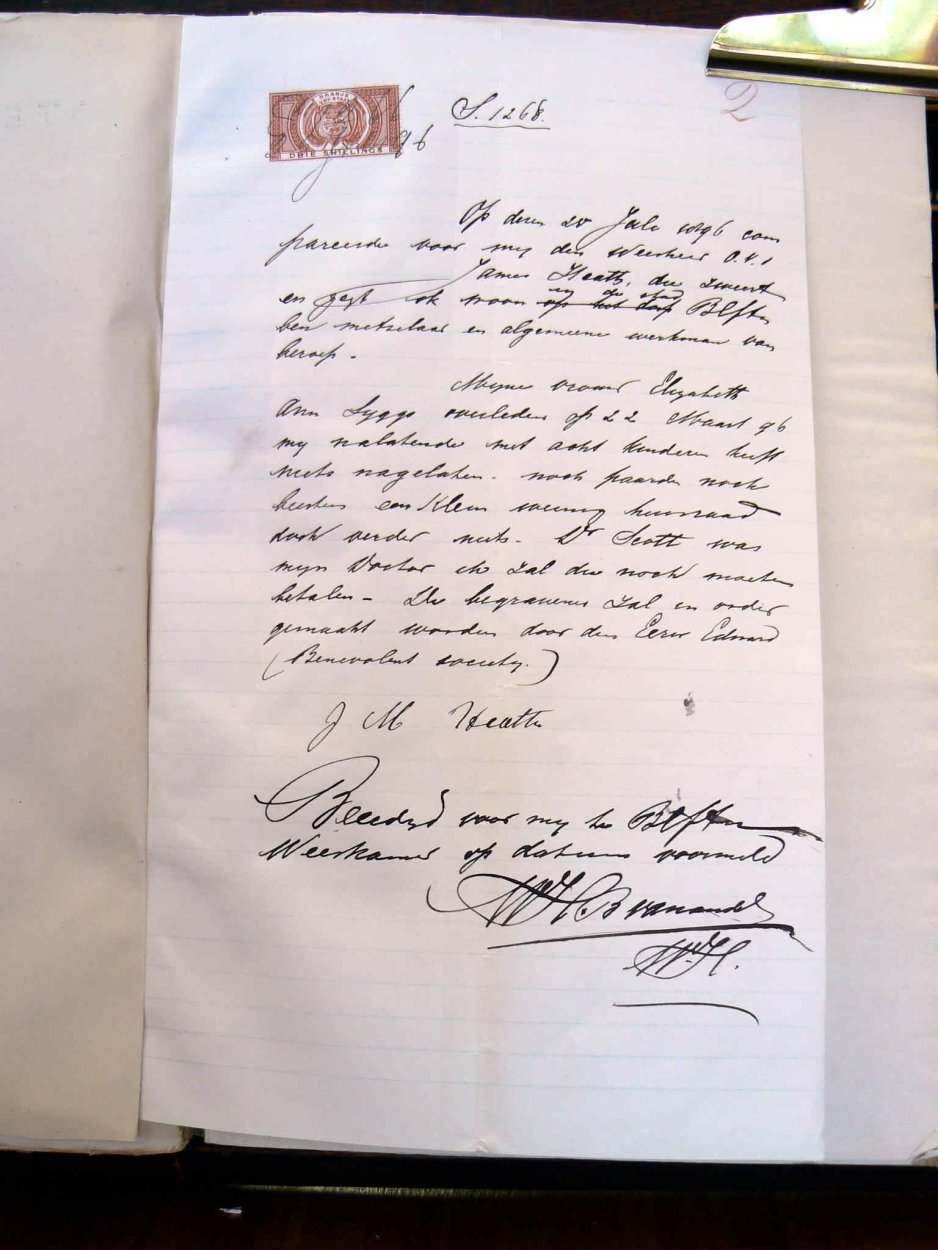 2
S. 1268.
ORANJE
DRIE SHILLINGS
96
Op dezen 20 Juli 1896 com
pareerde voor my den Weesheer O.V.S
James Heath, die zweert
en zegt ik woon op het dorp in de stad Blftn
ben metselaar en algemeene werkman van
beroep.
Myne vrouw Elizabeth
Ann Syggs overleden op 22 Maart 96
my nalatende met acht kinderen heeft
niets nagelaten. noch paarden noch
beesten een klein weinig huisraad
doch verder niets. Dr Scott was
mijn Doctor ik zal die noch moeten
betalen - De begravenis zal in order
gemaakt worden door den Eerw Edward
(Benevolent society.)
J M Heath
Beeedigd voor my te Blftn
Weeskamer op datum voormeld
W.H.